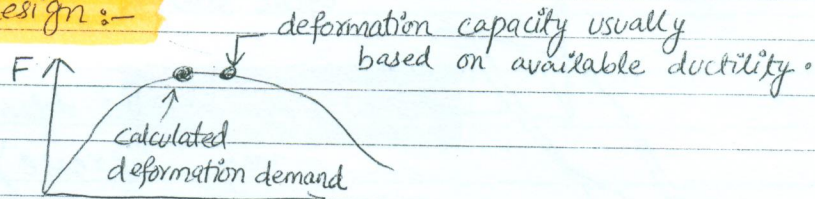 esign :-
deformation capacity usually
based on available ductility.
F
calculated
deformation demand